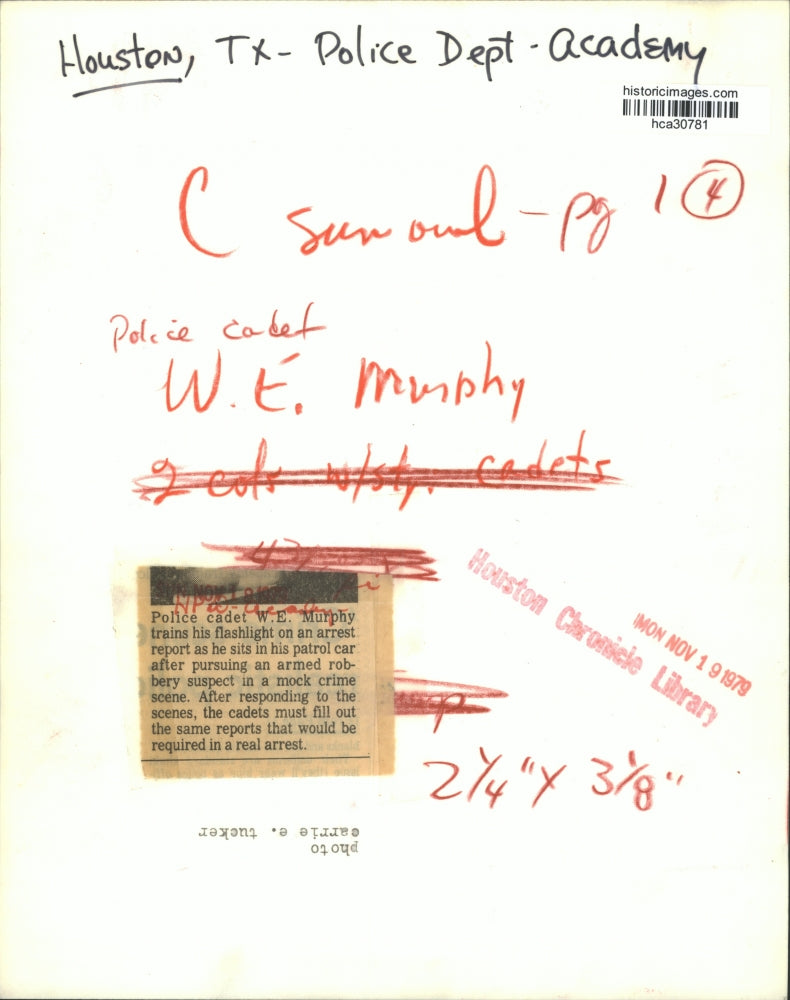 Houston, TX - Police Dept - Academy
historicimages.com
hca30781
C sun oul - pg 1 4
Police cadet
W.E. Murphy
2 cols w/sty. cadets
Houston Chronicle Library
MON NOV 19 1979
Police cadet W.E. Murphy
trains his flashlight on an arrest
report as he sits in his patrol car
after pursuing an armed rob-
bery suspect in a mock crime
scene. After responding to the
scenes, the cadets must fill out
the same reports that would be
required in a real arrest.
2 1/4" X 3 1/8"
photo
carrie e. tucker